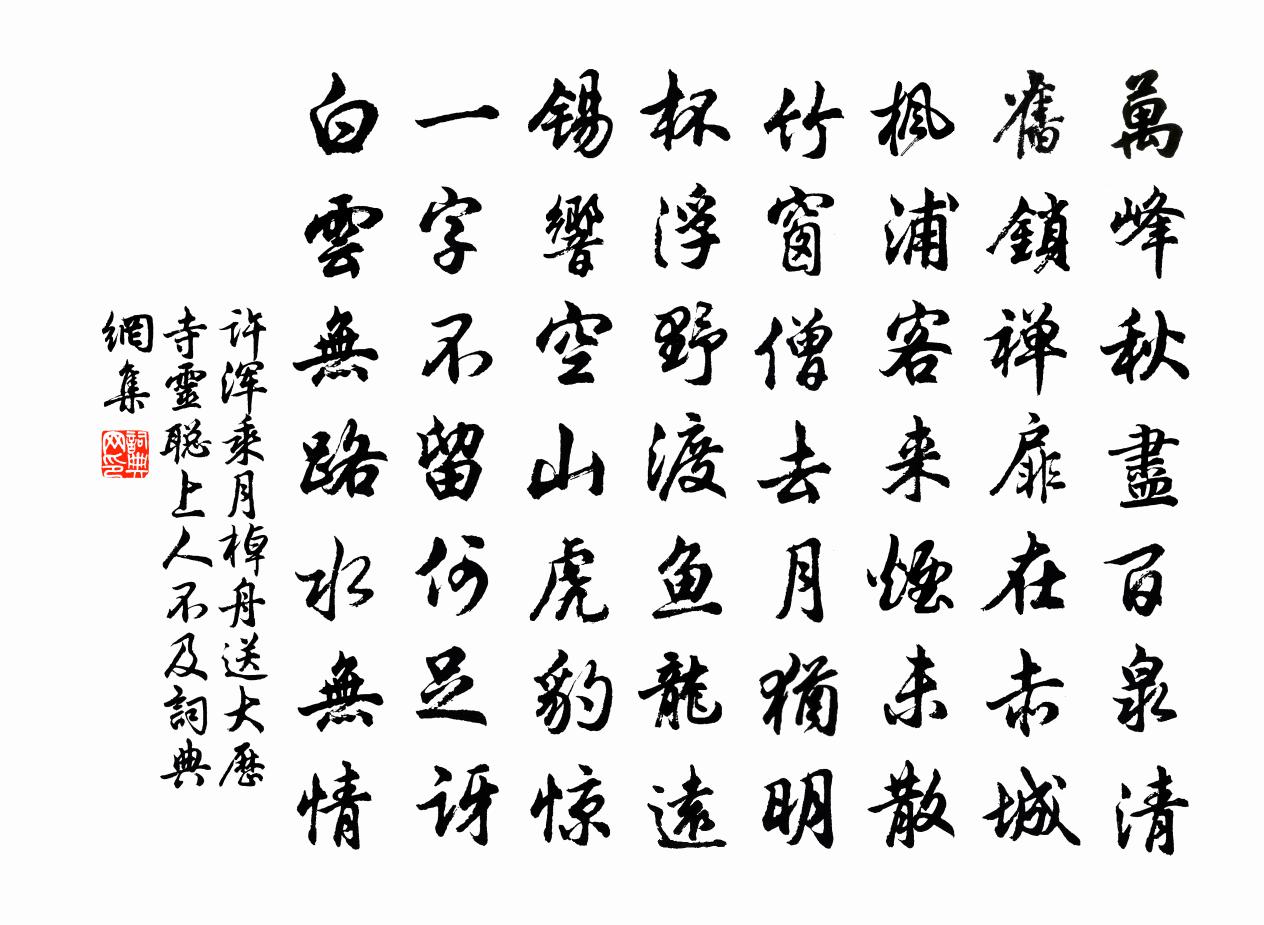 萬峰秋盡百泉清
舊鎖禅扉在赤城
楓浦客来煙未散
竹窗僧去月猶明
杯浮野渡鱼龍遠
錫響空山虎豹惊
一字不留何足讶
白雲無路水無情
许渾乘月棹舟送大歷
寺靈聪上人不及詞典
網集
詞典网印